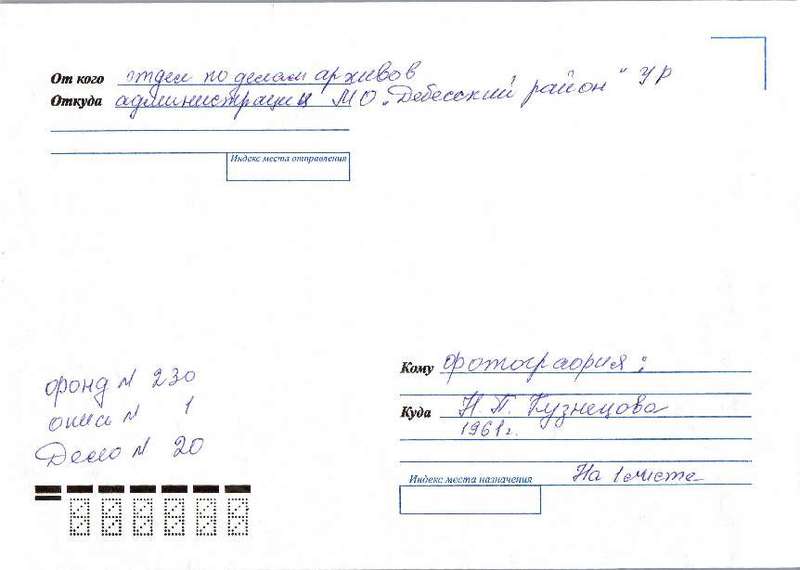 От кого отдел по делам архивов
Откуда администрации МО „Дебесский район" УР
Индекс места отправления
Кому фотография:
Куда Н. П. Кузнецова
1961г.
На 1 листе
Индекс места назначения
фонд № 230
опись № 1
Дело № 20